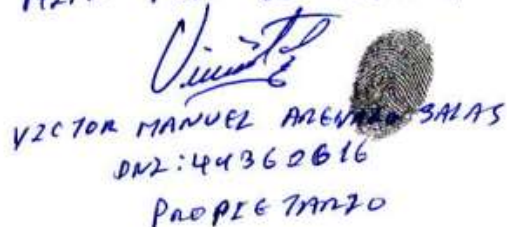 VICTOR MANUEL ARENAZO SALAS
DNI:44360616
PROPIETARIO